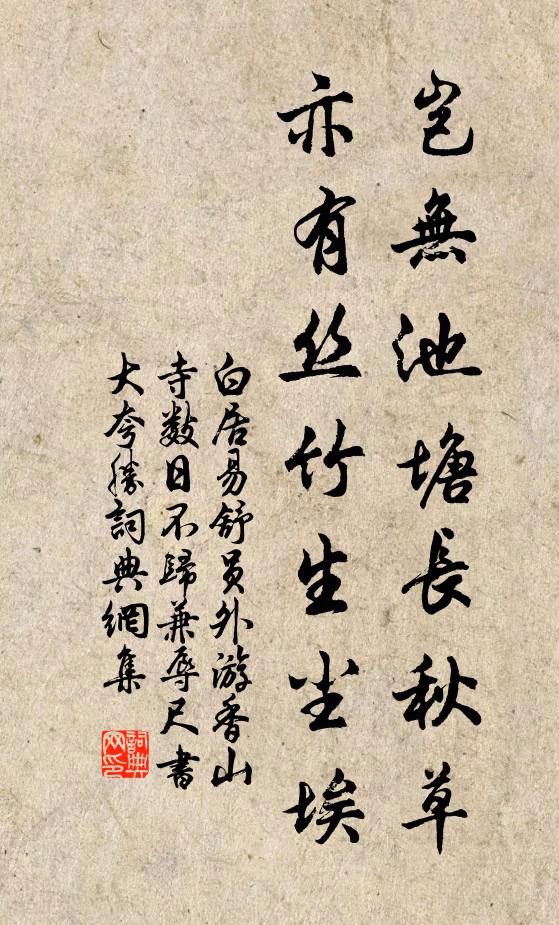 豈無池塘長秋草
亦有丝竹生尘埃
白居易舒員外游香山
寺数日不歸兼辱尺書
大夸勝詞典網集
詞典
网印